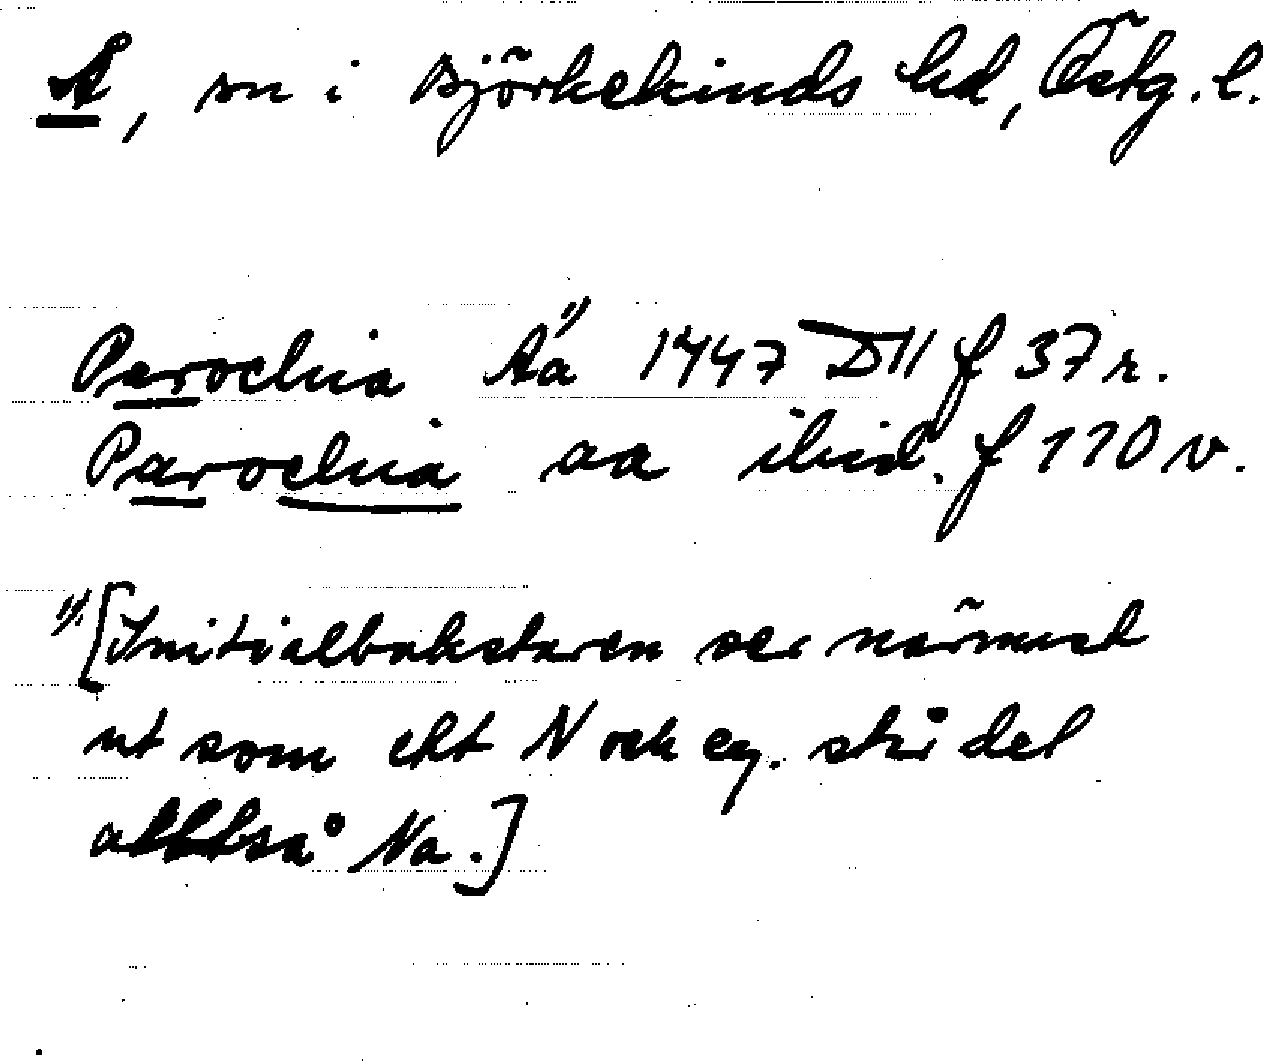 Å, sn i Björkekinds hd, Östg. l.
Parochia Aa 1) 1447 D 11 f 37 r.
Parochia aa ibid. f 110 v.
1) [Initialbokstaven ser närmast
ut som ett N och eg. står del
alltså Na.]